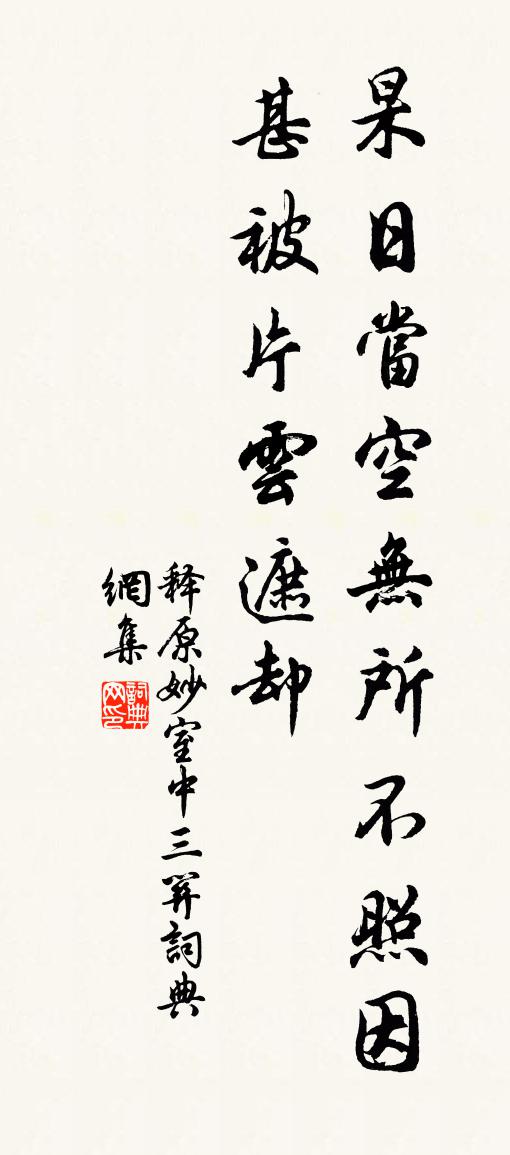 杲日當空無所不照因
甚被片雲遮却
释原妙室中三關詞典
網集
詞典
网印